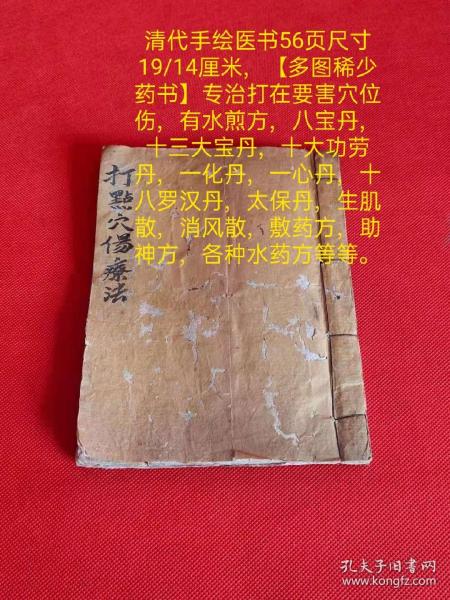 清代手绘医书56页尺寸
19/14厘米,【多图稀少
药书】专治打在要害穴位
伤,有水煎方,八宝丹,
十三大宝丹,十大功劳
丹,一化丹,一心丹,十
八罗汉丹,太保丹,生肌
散,消风散,敷药方,助
神方,各种水药方等等。
打點穴傷療法
孔夫子旧书网
www.kongfz.com